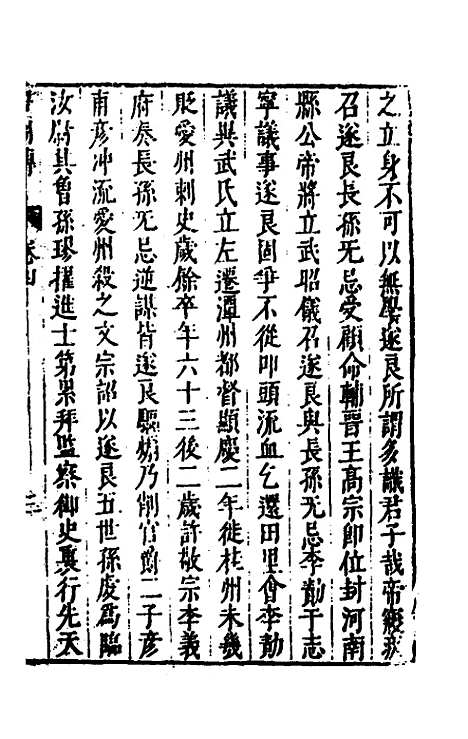 之立身不可以無學遂良所謂多識君子哉帝寢疾
召遂良長孫无忌受顧命輔晉王高宗即位封河南
縣公帝將立武昭儀召遂良與長孫无忌李勣于志
寧議事遂良固爭不從叩頭流血乞還田里會李勣
議異武氏立左遷潭州都督顯慶二年徙桂州未幾
貶愛州刺史歲餘卒年六十三後二歲許敬宗李義
府奏長孫无忌逆謀皆遂良驅煽乃削官爵二子彥
甫彥冲流愛州殺之文宗詔以遂良五世孫虔爲臨
汝尉其魯孫璆擢進士第累拜監察御史裏行先天
卷四